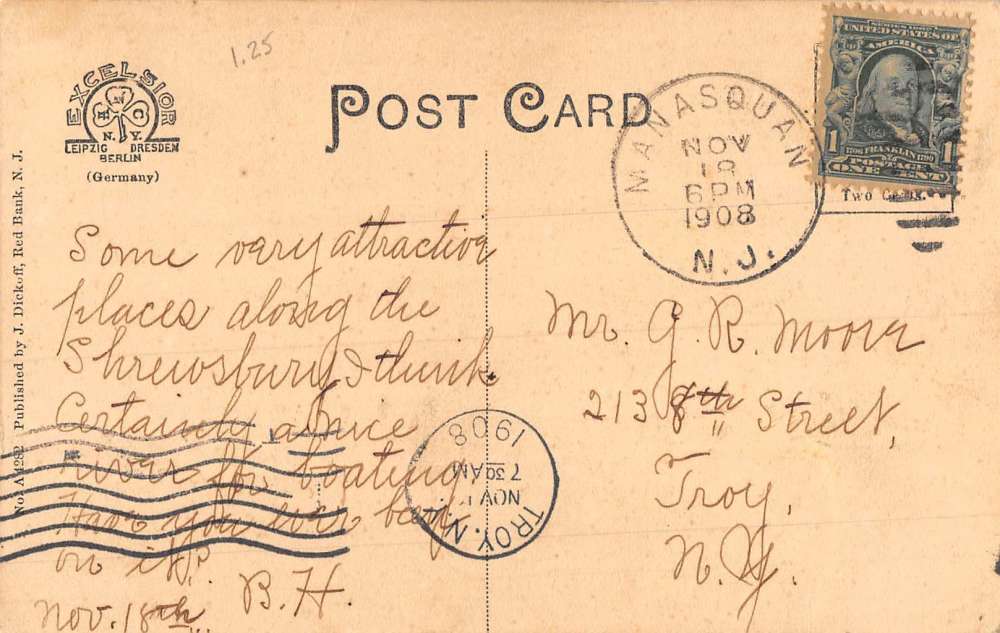 1.25
EXCELSIOR
N.Y.
LEIPZIG DRESDEN
BERLIN
(Germany)
POST CARD
MANASQUAN
NOV
18
6 PM
1908
N.J.
SERIES 1902
UNITED STATES OF
AMERICA
1 1706 FRANKLIN 1790 1
POSTAGE
ONE CENT
Two
No. A14282 Published by J. Dickoff, Red Bank, N. J.
Some very attractive
places along the
Shrewsbury, I think.
Certainly a nice
river for boating.
Have you ever been
on it?
B. H.
Nov. 18th
Mr. G. R. Moore
213 8th Street,
Troy,
N. Y.
TROY, N.
NOV
7 30 AM
1908